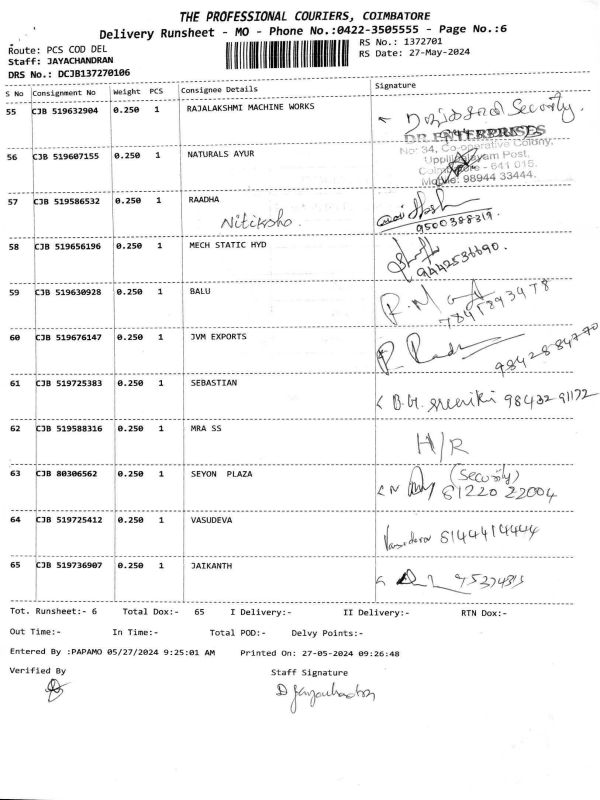 THE PROFESSIONAL COURIERS, COIMBATORE
Delivery Runsheet - MO - Phone No.:0422-3505555 - Page No.:6
Route: PCS COD DEL
RS No.: 1372701
Staff: JAYACHANDRAN
RS Date: 27-May-2024
DRS No.: DCJB137270106
S No Consignment No Weight PCS Consignee Details Signature
55 CJB 519632904 0.250 1 RAJALAKSHMI MACHINE WORKS
Security.
DR ENTERPRISES
No: 34, Co-operative Colony,
56 CJB 519607155 0.250 1 NATURALS AYUR
Uppilipalayam Post,
Coimbatore - 641 015.
Mobile: 98944 33444.
57 CJB 519586532 0.250 1 RAADHA
Nitiksho.
9500388319.
58 CJB 519656196 0.250 1 MECH STATIC HYD
9442536690.
59 CJB 519630928 0.250 1 BALU
60 CJB 519676147 0.250 1 JVM EXPORTS
61 CJB 519725383 0.250 1 SEBASTIAN
98432 91172
62 CJB 519588316 0.250 1 MRA SS
H/R
63 CJB 80306562 0.250 1 SEYON PLAZA
(Security)
81220 22004
64 CJB 519725412 0.250 1 VASUDEVA
Vasudeva 8144414444
65 CJB 519736907 0.250 1 JAIKANTH
Tot. Runsheet:- 6 Total Dox:- 65 I Delivery:- II Delivery:- RTN Dox:-
Out Time:- In Time:- Total POD:- Delvy Points:-
Entered By :PAPAMO 05/27/2024 9:25:01 AM Printed On: 27-05-2024 09:26:48
Verified By Staff Signature
D Jayachandran